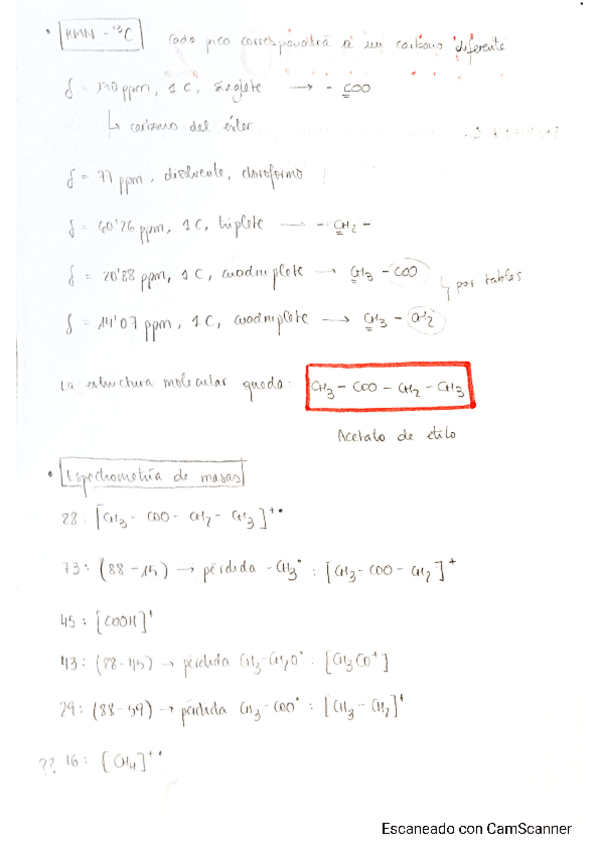 • RMN - ¹³C cada pico corresponderá a un carbono diferente
δ = 170 ppm, 1 C, singlete → - COO
↳ carbono del éster
δ = 77 ppm, disolvente, cloroformo
δ = 60'26 ppm, 1 C, triplete → - CH₂ -
δ = 20'88 ppm, 1 C, cuadruplete → CH₃ - COO
↳ por tablas
δ = 14'07 ppm, 1 C, cuadruplete → CH₃ - CH₂
La estructura molecular queda: CH₃ - COO - CH₂ - CH₃
Acetato de etilo
• Espectrometría de masas
88: [CH₃ - COO - CH₂ - CH₃]⁺•
73: (88 - 15) → pérdida - CH₃• : [CH₃ - COO - CH₂]⁺
45: [COOH]⁺
43: (88 - 45) → pérdida CH₃-CH₂O• : [CH₃CO⁺]
29: (88 - 59) → pérdida CH₃ - COO• : [CH₃ - CH₂]⁺
?? 16: [CH₄]⁺•
Escaneado con CamScanner